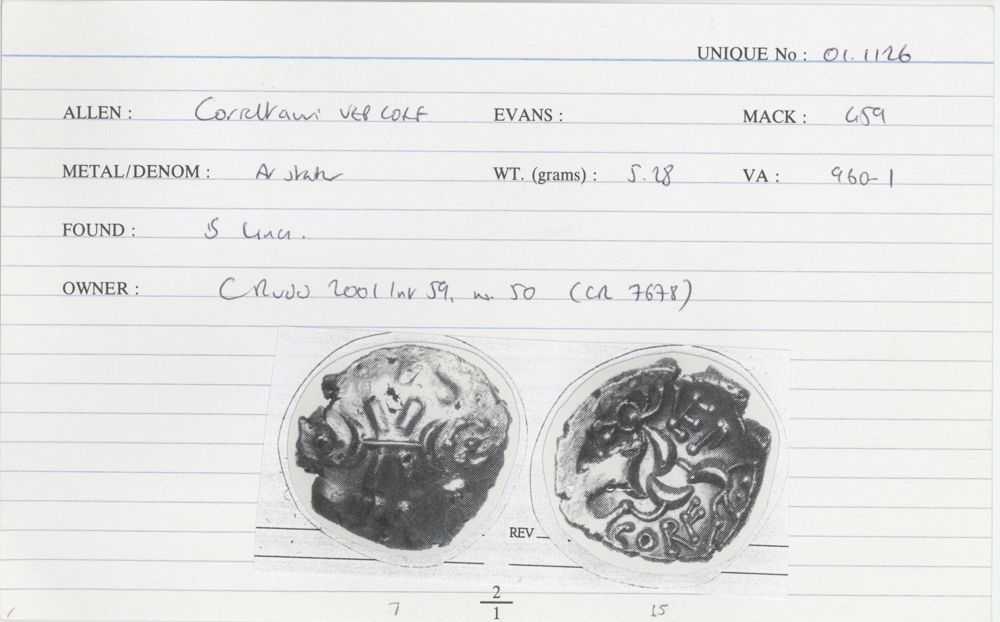 UNIQUE No : 01.1126
ALLEN : Correltauvi VEP CORF EVANS : MACK : 459
METAL/DENOM : Ar stater WT. (grams) : 5.28 VA : 960-1
FOUND : S Lincs.
OWNER : CRudd 2001 list 59, no. 50 (CR 7678)
REV
CORF
7 2/1 15